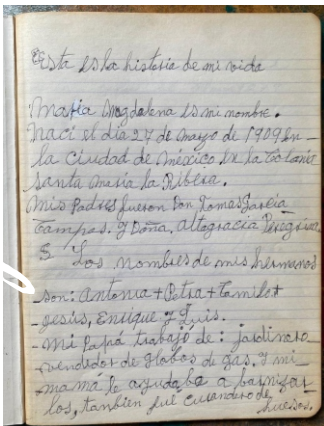 Esta es la historia de mi vida
Maria Magdalena es mi nombre.
Naci el dia 27 de mayo de 1909 en
la ciudad de mexico en la Colonia
santa maria la Ribera.
mis Padres fueron Don Tomas Garcia
Campos. y Doña, Altagracia Peregrina
Los nombres de mis hermanos
son: Antonia + Petra + Camilo +
Jesús, Enrique y Luis.
- mi Papá trabajó de: jardinero
- vendedor de globos de gas, y mi
mamá le ayudaba a barnizar
los, tambien fué curandero de
huesos.